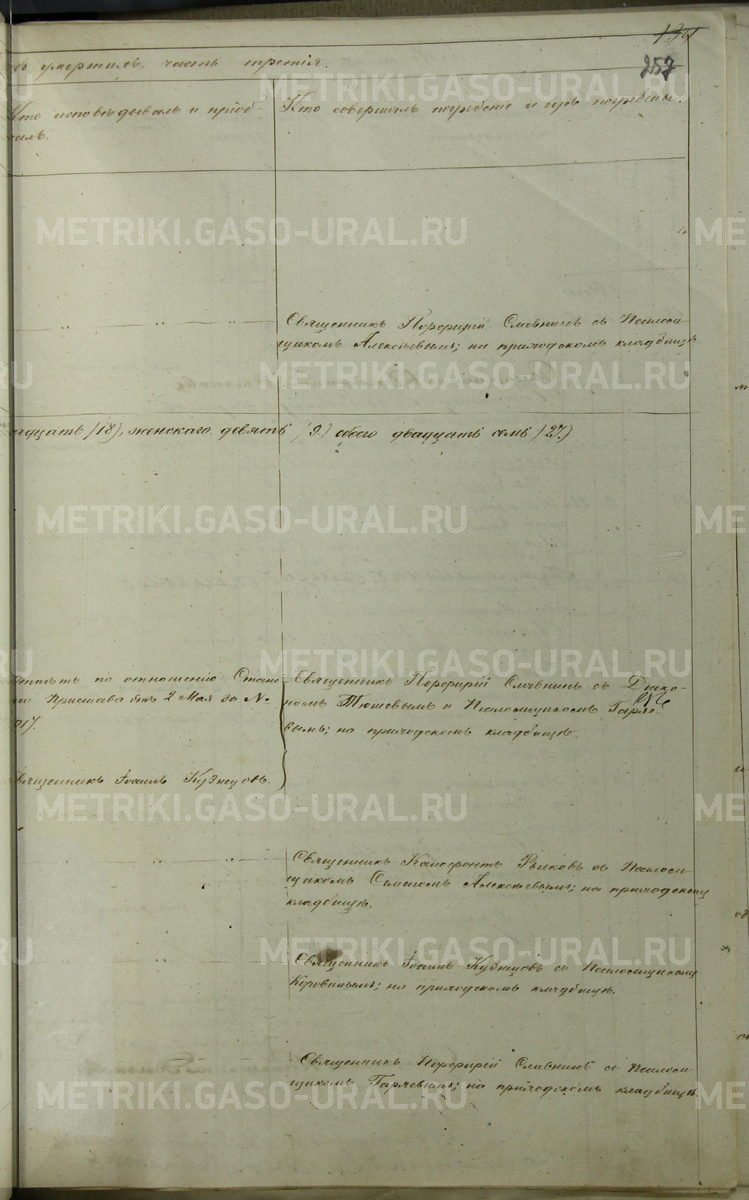 257
умершихъ, часть третія.
Кто исповѣдывалъ и пріоб-
Кто совершалъ погребеніе и гдѣ погребены.
METRIKI.GASO-URAL.RU
Священникъ Порфирій Славнинъ съ Псаломщи-
щикомъ Алексѣевымъ; на приходскомъ кладбищѣ.
METRIKI.GASO-URAL.RU
надцать (18), женскаго девять (9) обоего двадцать семь (27)
METRIKI.GASO-URAL.RU
METRIKI.GASO-URAL.RU
Отпѣтъ по отношенію Стано-
Пристава отъ 2 Мая за №
017.
Священникъ Порфирій Славнинъ съ Діако-
номъ и Псаломщикомъ
вымъ; на приходскомъ кладбищѣ.
Священникъ Іоаннъ Кузнецовъ.
METRIKI.GASO-URAL.RU
Священникъ съ Псалом-
щикомъ Алексѣевымъ; на приходскомъ
кладбищѣ.
METRIKI.GASO-URAL.RU
Священникъ Іоаннъ Кузнецовъ съ Псаломщикомъ
Коровинымъ; на приходскомъ кладбищѣ.
Священникъ Порфирій Славнинъ съ Псалом-
щикомъ на приходскомъ кладбищѣ.
METRIKI.GASO-URAL.RU